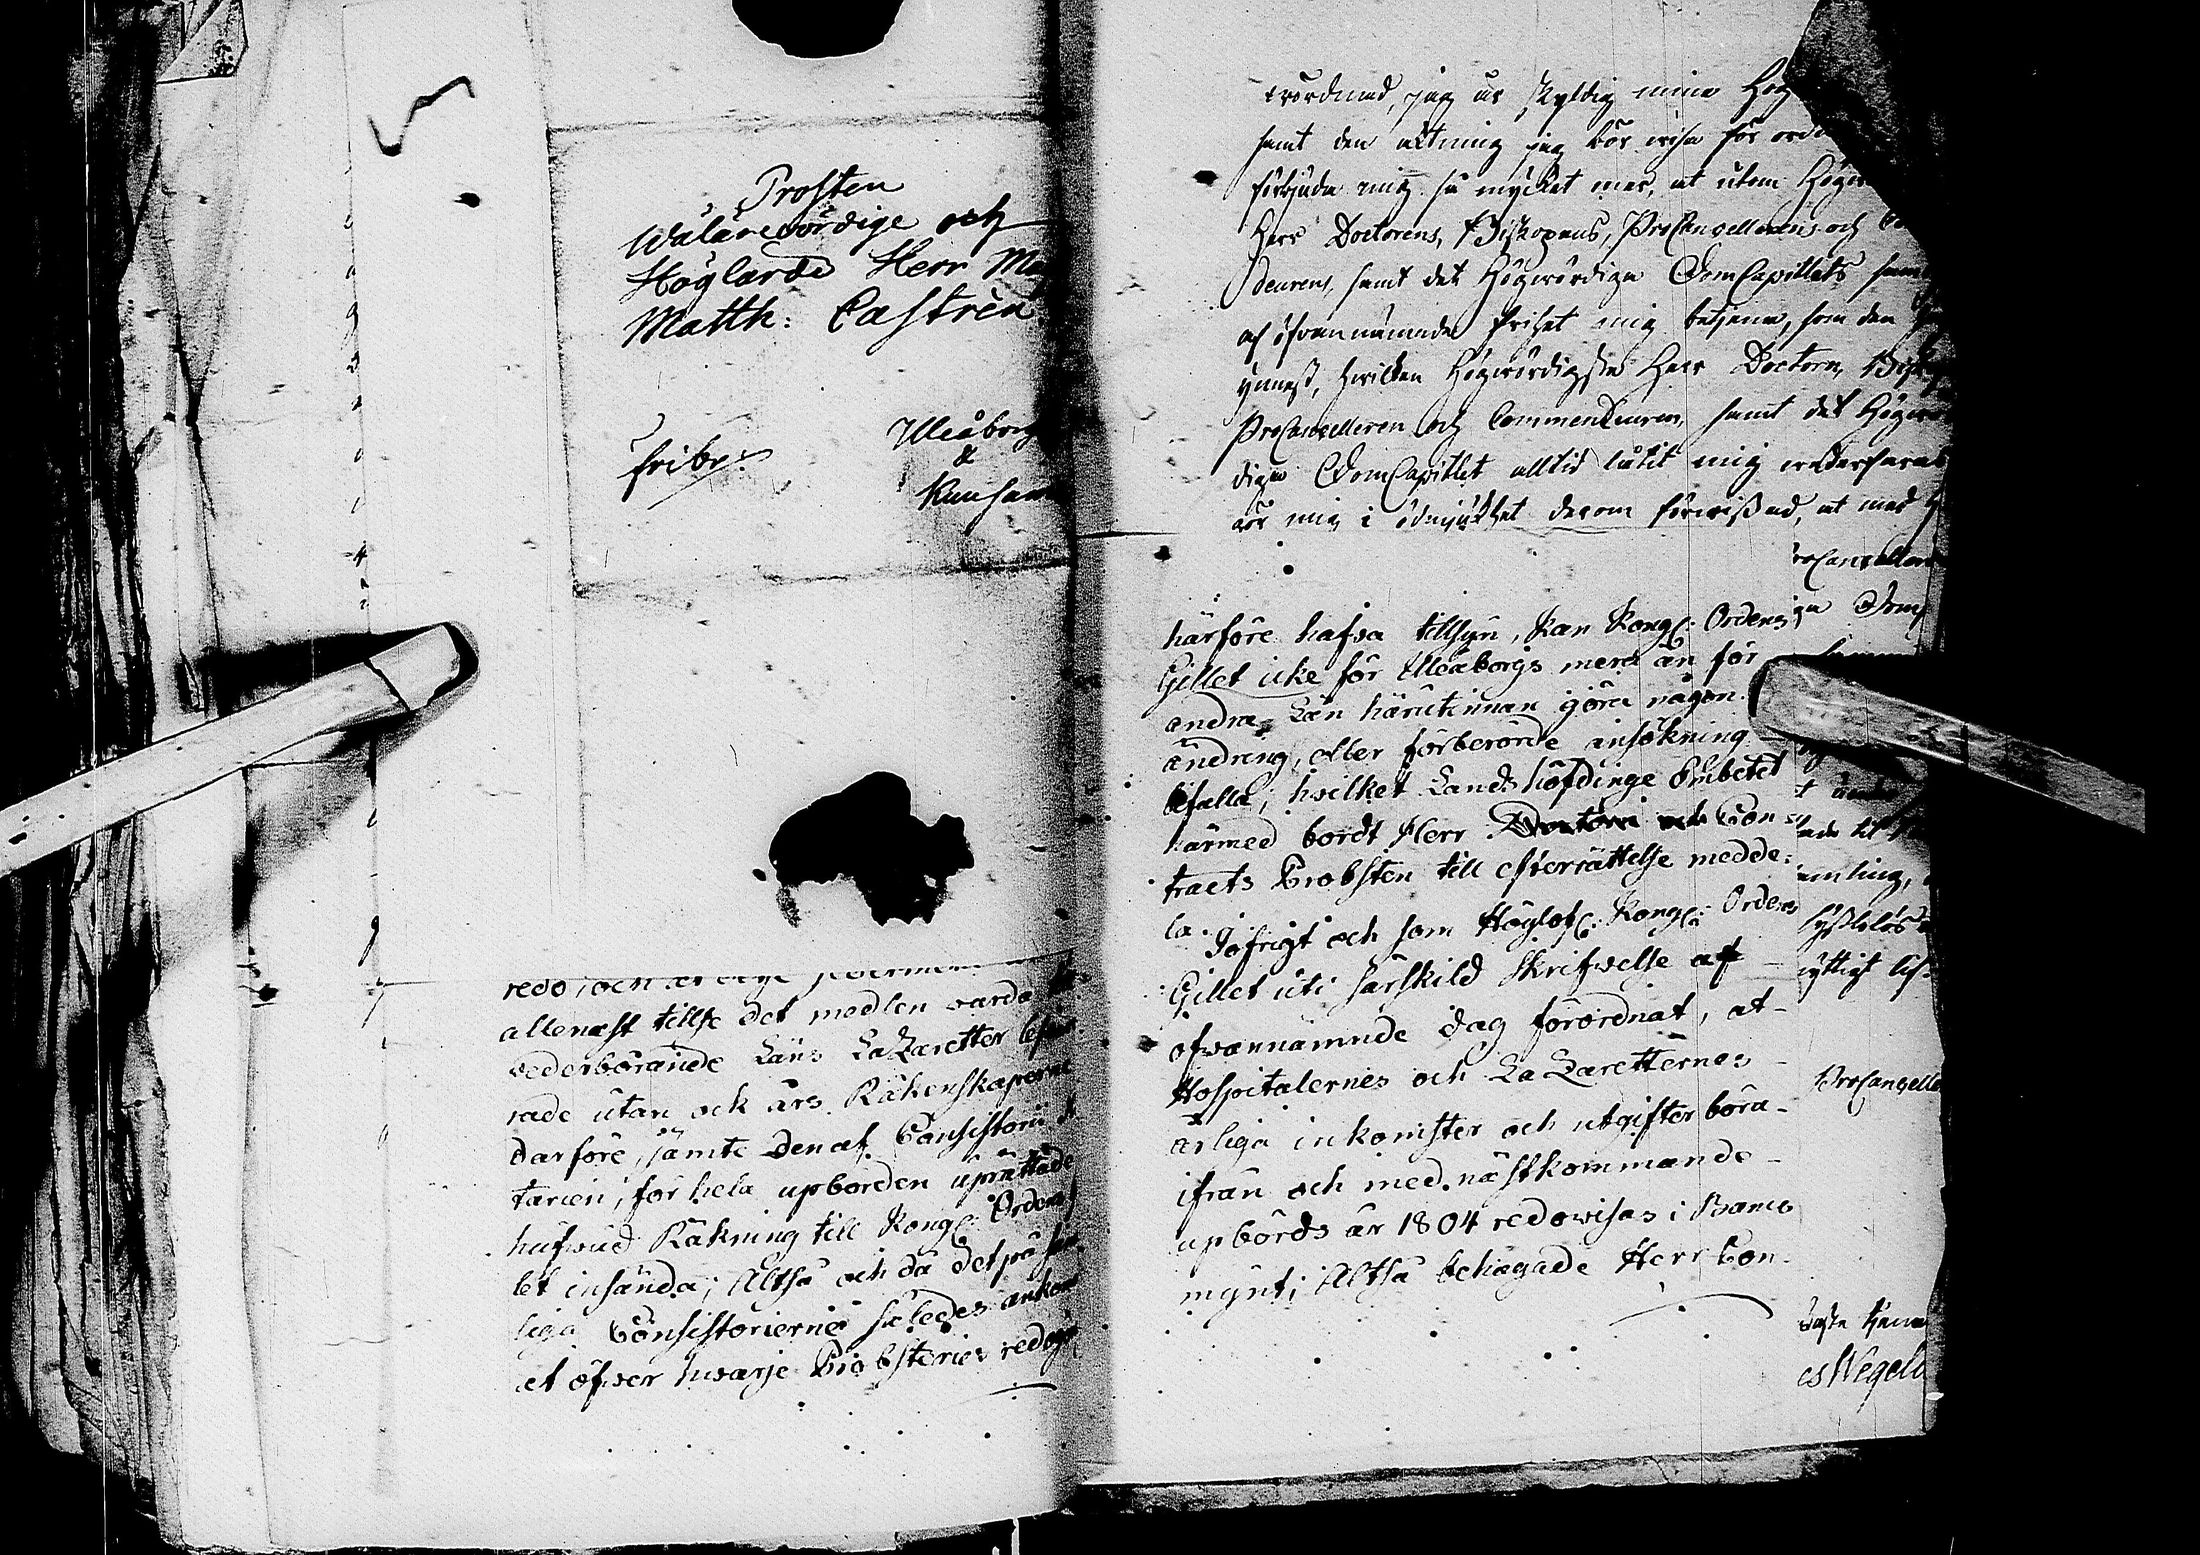 Prosten
Wälärewördige och
Höglärde Herr Mag
Matth: Castrèn
Uleåborg
fribr:
&
redo, och
allenast tillse det medlen varda
vederbörande Läns Lazaretter lefve-
rade utan ock års Räkenskaperne
darföre, jämte den af Consistorii
tarien, för hela upborden uprättade
hufvud Räkning till Kongl: Ordens
let insända; Altså och då det på
liga Consistoriernes således ankom
at öfver hvarje Probsterier redogö
wördnad, jag är skyldig mina Hög
samt den aktning jag bör wisa för
förbjuda mig så mycket mer, at utom Högw
Herr Doctorens, Biskopens, ProCancellerens och Co
deurens, samt det Högwördiga DomCapitlets
af öfvannämnde frihet mig betjena, som den
ynnest, hwilken Högwördigste Herr Doctorn, Bisk
ProCancelleren och Commendeuren, samt det Högwör
diga DomCapitlet alltid låtit mig wederfaras
gör mig i ödmjukhet derom förwissad, at med
roCanceller
ga Dom
härföre hafva tillsyn, kan Kongl: Ordens
Gillet icke för Uleåborgs mera än för
andra Län härutinnan göra någon
ändring, eller förberörde ansökning
bifalla; hvilket Landshöfdinge Embetet
härmed bordt Herr Doctorn och Con-
tracts Probsten till efterrättelse medde-
la. Iöfrigt och som Höglofl: Kongl: Ordens
Gillet uti särskild skrifvelse af
ofvannämnde dag förordnat, at
Hospitalernes och Lazaretternes
årliga inkomster och utgifter böra
ifrån och med nästkommande
upbörds år 1804 redovisas i Banco
mynt; Altså behagade Herr Con-
ade til
amling,
sysslolös
yttigt lif
ProCancelle
este tjena
es Wegel